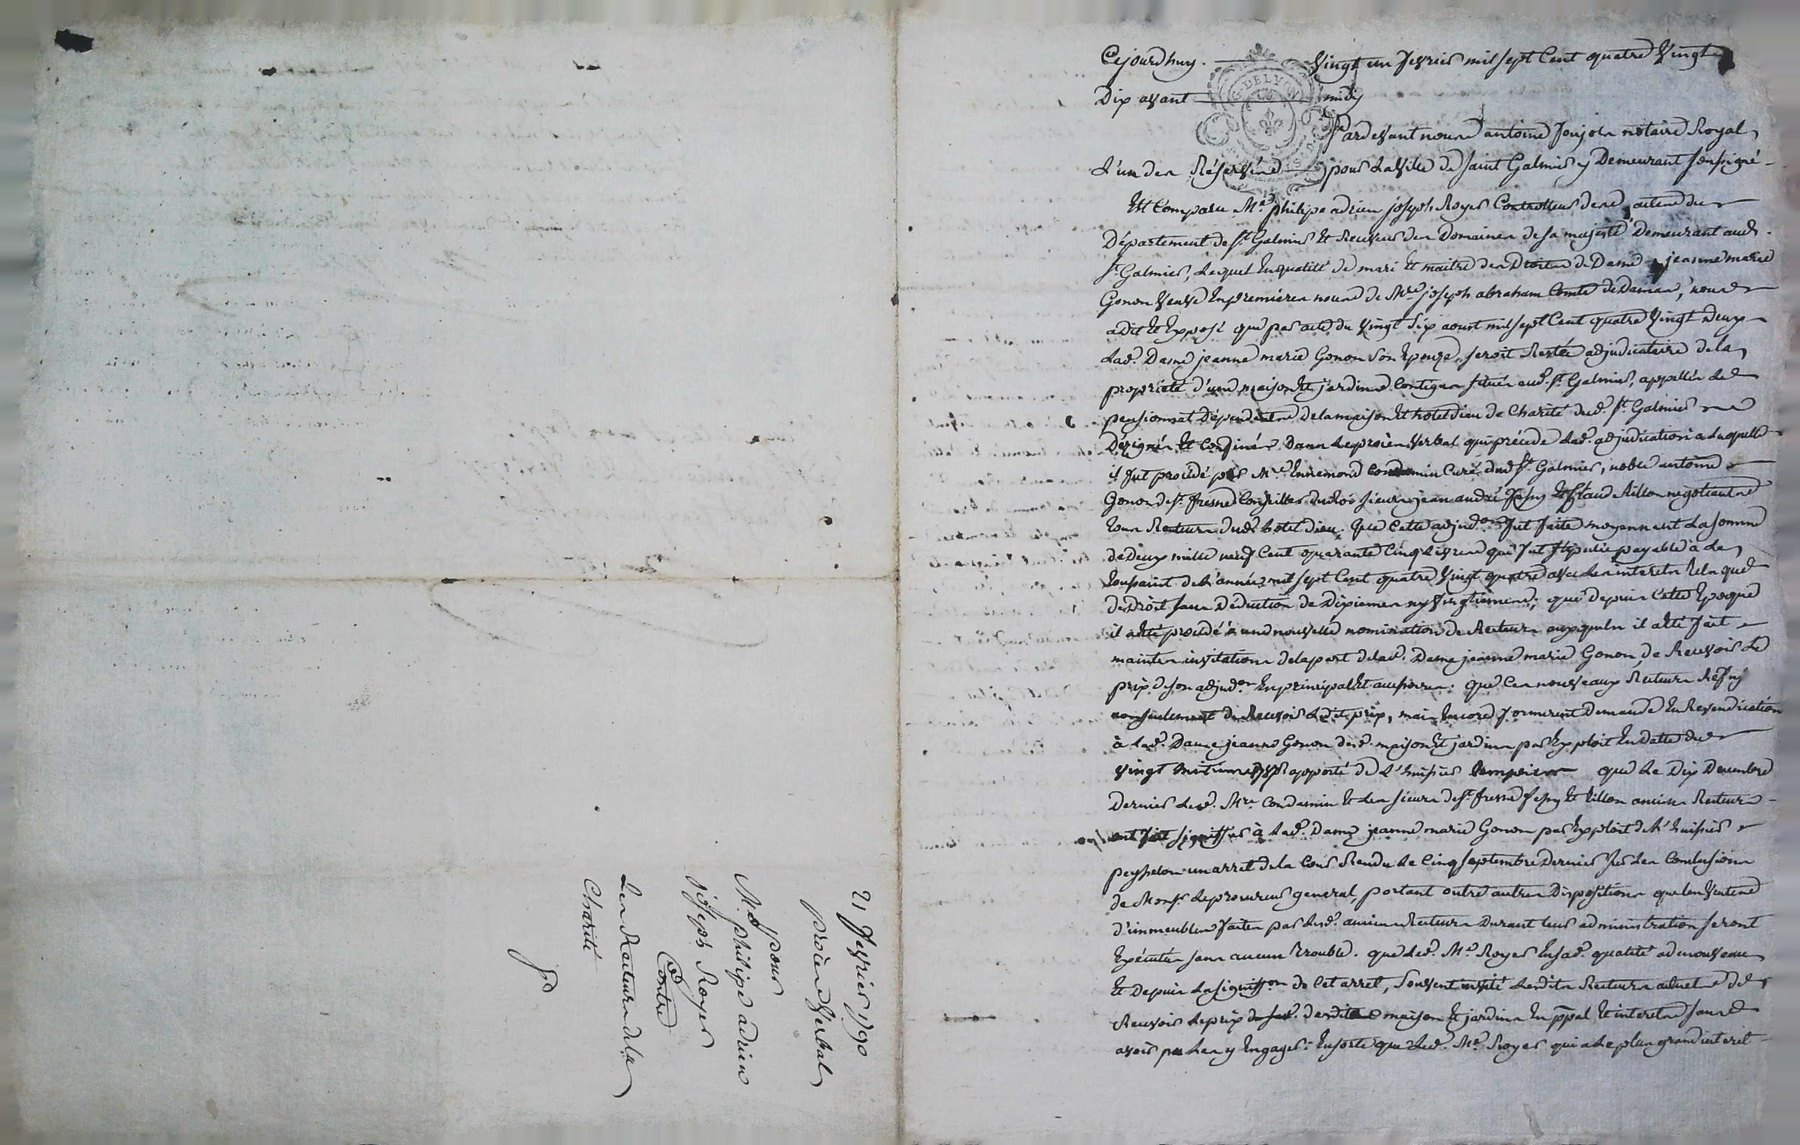 Cejourdhuy vingt un fevrier mil sept Cent quatre Vingt
Dix avant midy
Pardevant nous antoine Joujon notaire Royal
L'un des Réservés pour la ville de Saint Galmier y Demeurant soussigné
Est Comparu Me philipe adrien joseph Royer Controlleur des actes du
Département de St Galmier Et Receveur des Domaines de sa majesté Demeurant aud.
St Galmier, Lequel En qualité de mari Et maitre des Droits de Dame jeanne marie
Gonon veuve En premieres noces de Mre joseph abraham Comte de Damas, nous
a dit Et Exposé que par acte du vingt Six aoust mil sept Cent quatre Vingt Deux
Lad. Dame jeanne marie Gonon Son Epouze, seroit Restée adjudicataire de la
propriété d'une maison Et jardins Contigus situés aud. St Galmier, appellés Le
pensionnat Dépendants de la maison Et hotel dieu de Charité dud. St Galmier
Désignés Et Confinés Dans Le procès Verbal qui précéde Lad. adjudication a Laquelle
il fut procédé par Mre Ennemond Condamin Curé dud St Galmier, noble antoine
Gonon de St fresne Conseiller du Roi Sieurs jean andré Et Claude Rillon negotiants
tous Recteurs dud. hotel dieu, que Cette adjudon fut faite moyennant La somme
de Deux mille neuf Cent quarante Cinq Livres qui fut stipulée payable à La
toussaint de L'année mil sept Cent quatre Vingt quatre avec Les interets tels que
de Droit sans Déduction de Dixiemes ny Vingtiemes, que depuis Cette Epoque
il a été procédé à une nouvelle nomination de Recteurs auxquels il a été fait
maintes invitations de la part de lad. Dame jeanne marie Gonon, de Recevoir Le
prix de son adjudon En principal Et accessoires: que Ces nouveaux Recteurs
non seulement de Recevoir Ledit prix, mais Encore formerent Demande En Revendication
à lad. Dame jeanne Gonon desd. maison Et jardins par Exploit En datte du
vingt rapporté de L'huissier que Le Dix Decembre
Dernier Lesd. Mre Condamin Et Les sieurs de St fresne Et Rillon anciens Recteurs
ont fait signiffier à Lad. Dame jeanne marie Gonon par Exploit de L'huissier
peysselon un arret de la Cour Rendu Le Cinq septembre Dernier sur Les Conclusions
de Monsr Le procureur general, portant outre autres Dispositions que les Ventes
d'immeubles faites par Lesd. anciens Recteurs Durant leur administration seront
Exécutés sans aucun trouble. que Led. Me Royer En sad. qualité a de nouveau
Et Depuis La signiffon de Cet arret, Souvent invité Lesdits Recteurs actuels de
Recevoir Le prix desdites maison Et jardins En ppal Et interets sans
avoir pu Les y Engager: Ensorte que Led. Me Royer qui a Le plus grand interet
21 fevrier 1790
procès Verbal
pour
M. philipe adrien
joseph Royer
Contre
Les Recteurs de la
Charité